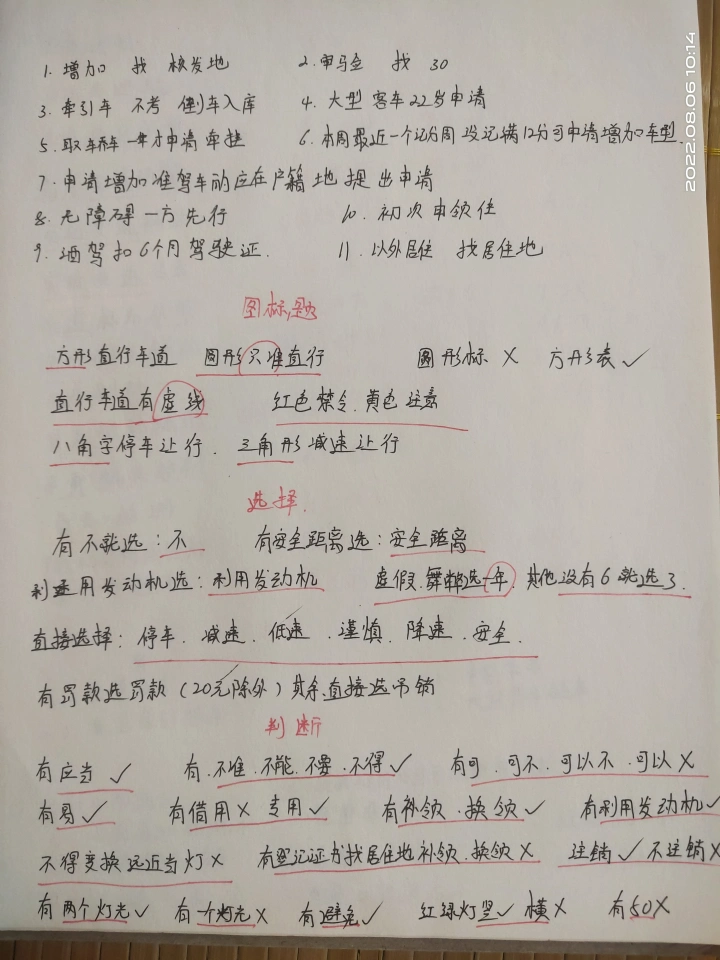 1. 增加 找 核发地 2. 申马金 找 30
3. 牵引车 不考 倒车入库 4. 大型客车22岁申请
5. 取轿车一年才申请牵挂 6. 本周最近一个记分周没记满12分可申请增加车型.
7. 申请增加准驾车的应在户籍地提出申请
8. 无障碍一方先行 10. 初次申领住
9. 酒驾扣6个月驾驶证. 11. 以外居住 找居住地
图标题
方形直行车道 圆形只准直行 圆形标 × 方形表 ✓
直行车道有虚线 红色禁令.黄色注意
八角字停车让行. 三角形减速让行
选择.
有不就选:不 有安全距离选:安全距离
利用发动机选:利用发动机 虚假.舞弊选一年.其他没有6就选3.
直接选择: 停车.减速.低速.谨慎.降速.安全.
有罚款选罚款(20元除外)其余直接选吊销
判断
有应当 ✓ 有.不准.不能.不要.不得 ✓ 有可.可不.可以不.可以 ×
有易 ✓ 有借用 × 专用 ✓ 有补领.换领 ✓ 有利用发动机 ✓
不得变换远近当灯 × 有登记证书找居住地补领.换领 × 注销 ✓ 不注销 ×
有两个灯光 ✓ 有一个灯光 × 有避免 ✓ 红绿灯竖 ✓ 横 × 有50 ×
2022.08.06 10:14